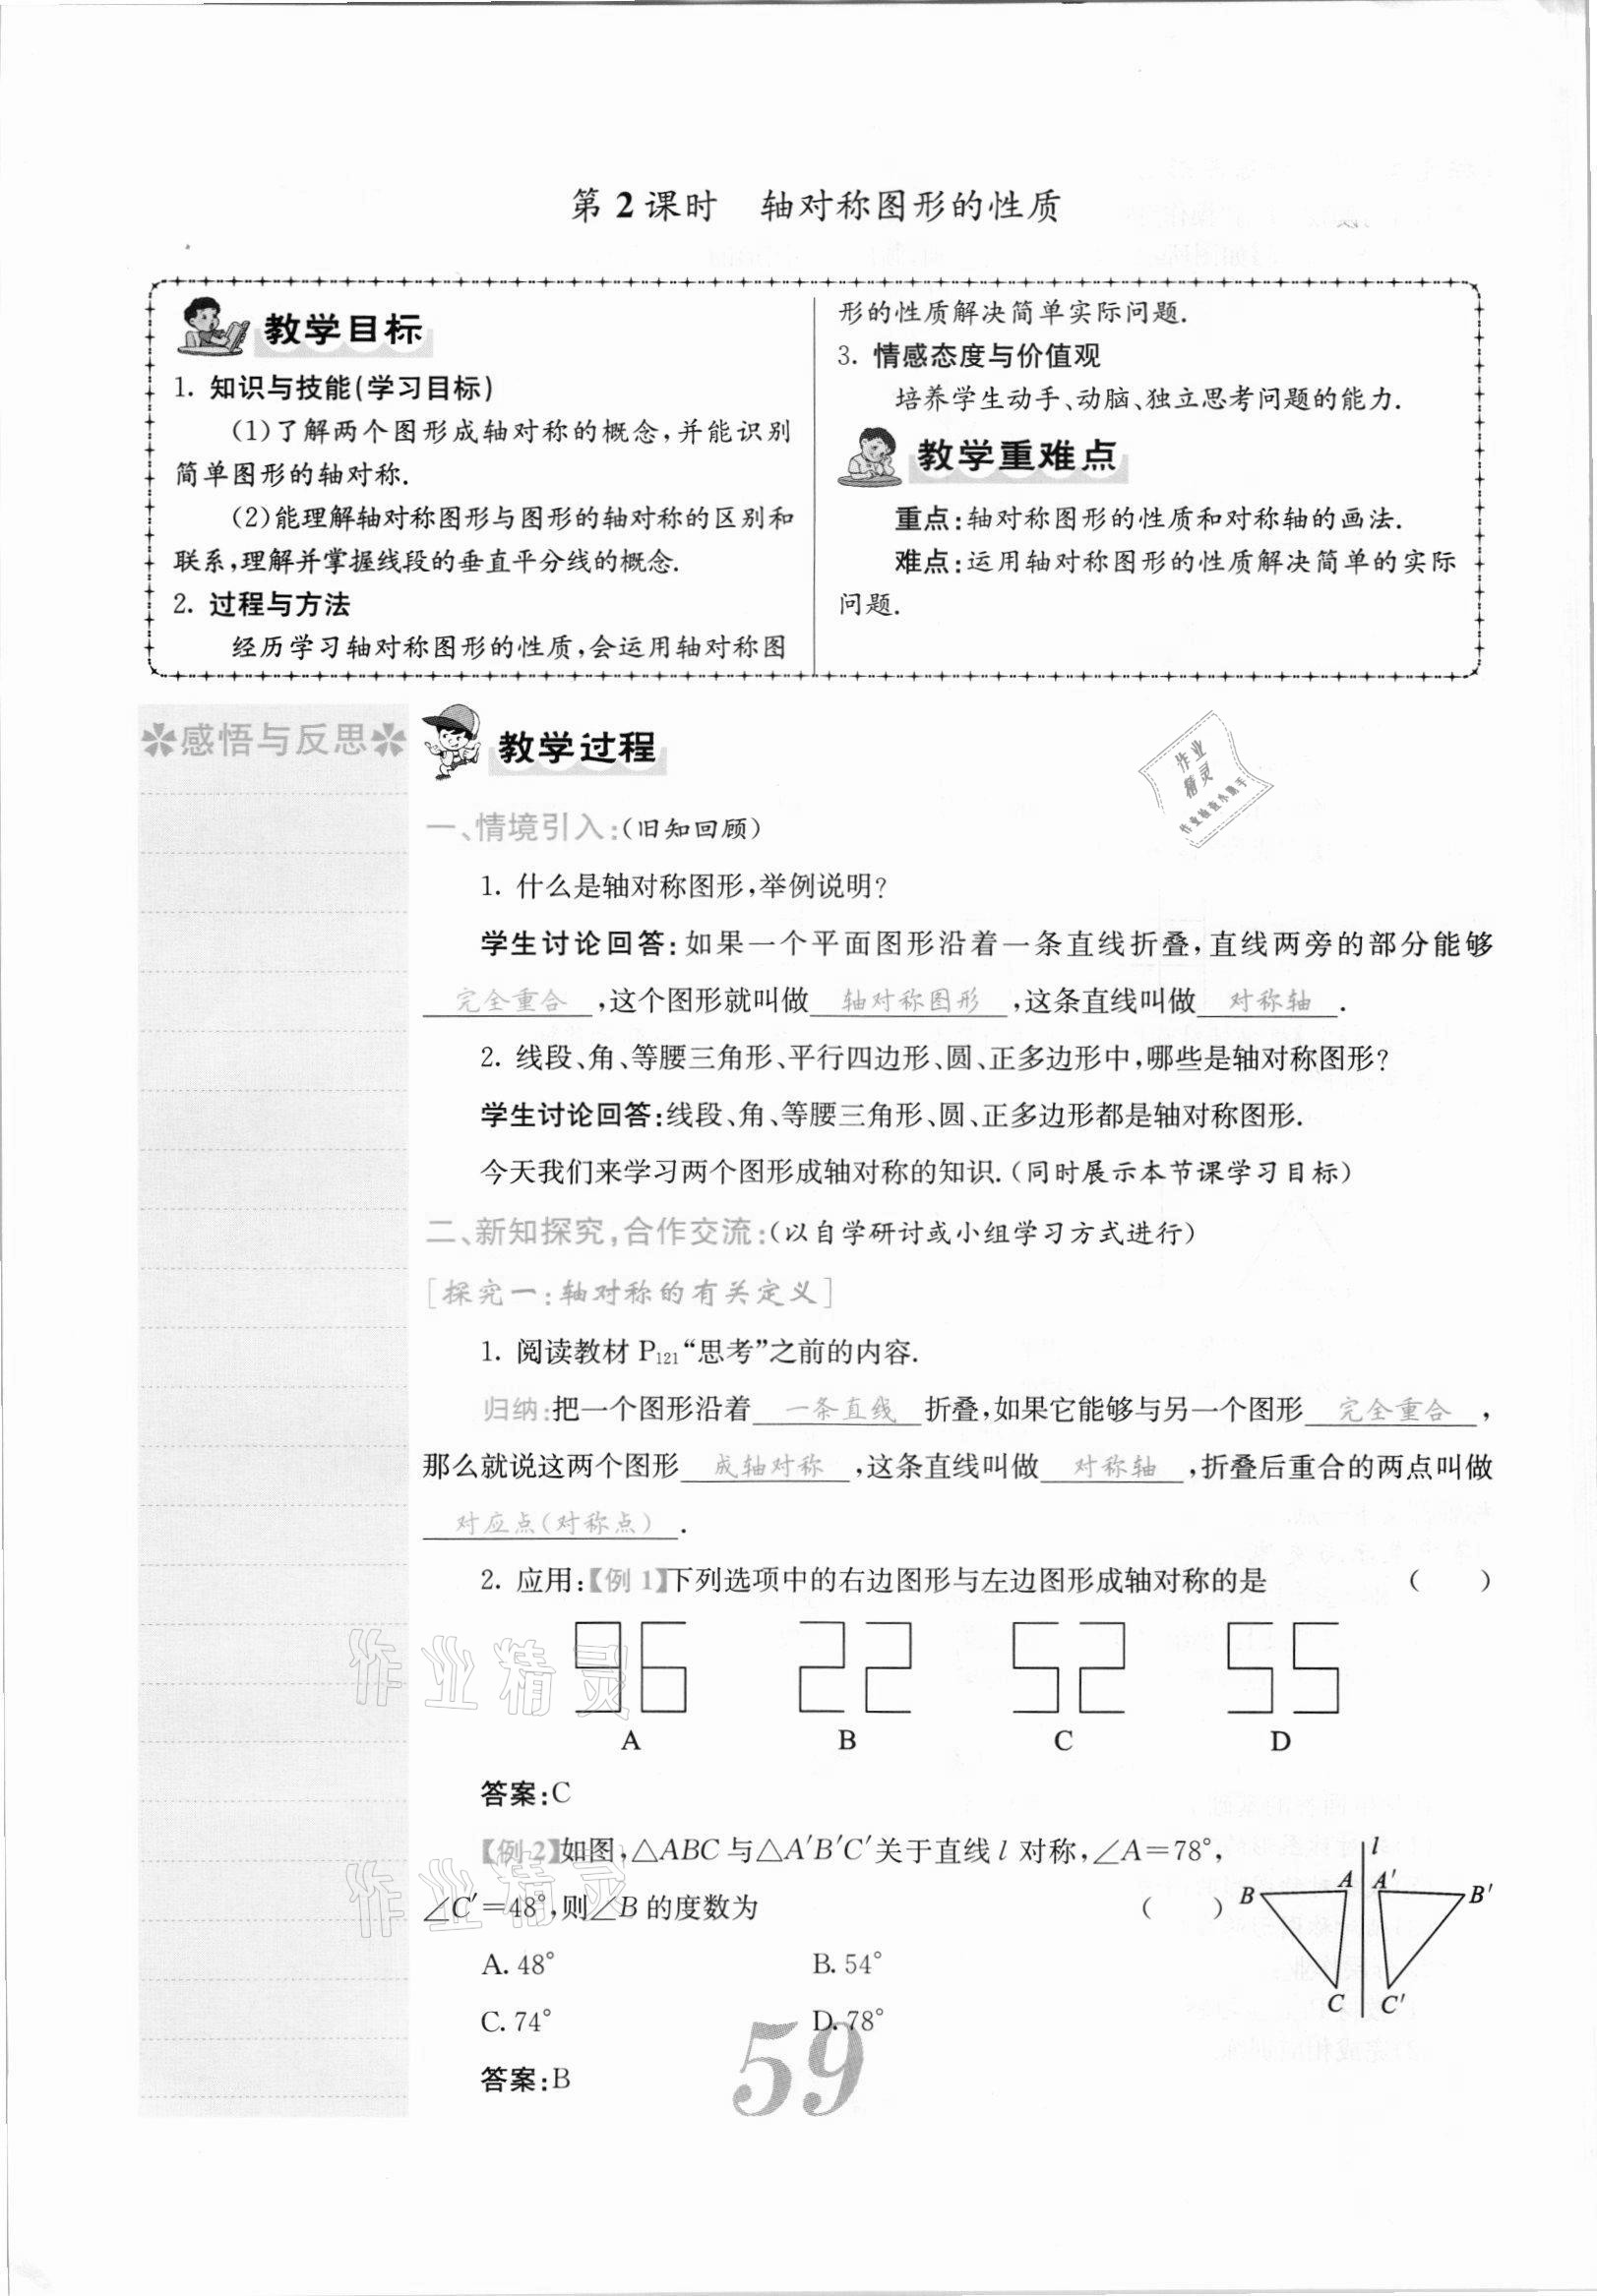 第2课时　轴对称图形的性质
教学目标
1. 知识与技能(学习目标)
(1)了解两个图形成轴对称的概念,并能识别
简单图形的轴对称.
(2)能理解轴对称图形与图形的轴对称的区别和
联系,理解并掌握线段的垂直平分线的概念.
2. 过程与方法
经历学习轴对称图形的性质,会运用轴对称图
形的性质解决简单实际问题.
3. 情感态度与价值观
培养学生动手、动脑、独立思考问题的能力.
教学重难点
重点:轴对称图形的性质和对称轴的画法.
难点:运用轴对称图形的性质解决简单的实际
问题.
感悟与反思
教学过程
作业
精灵
一、情境引入:(旧知回顾)
1. 什么是轴对称图形,举例说明?
学生讨论回答:如果一个平面图形沿着一条直线折叠,直线两旁的部分能够
完全重合,这个图形就叫做 轴对称图形,这条直线叫做 对称轴.
2. 线段、角、等腰三角形、平行四边形、圆、正多边形中,哪些是轴对称图形?
学生讨论回答:线段、角、等腰三角形、圆、正多边形都是轴对称图形.
今天我们来学习两个图形成轴对称的知识.(同时展示本节课学习目标)
二、新知探究,合作交流:(以自学研讨或小组学习方式进行)
[探究一:轴对称的有关定义]
1. 阅读教材P121“思考”之前的内容.
归纳:把一个图形沿着 一条直线 折叠,如果它能够与另一个图形 完全重合,
那么就说这两个图形 成轴对称,这条直线叫做 对称轴,折叠后重合的两点叫做
对应点(对称点).
2. 应用:【例1】下列选项中的右边图形与左边图形成轴对称的是 (　　)
A B C D
答案:C
【例2】如图,△ABC与△A′B′C′关于直线l对称,∠A=78°,
∠C′=48°,则∠B的度数为 (　　)
l
A A′
B B′
C C′
A. 48° B. 54°
C. 74° D. 78°
答案:B
59
作业精灵
作业精灵